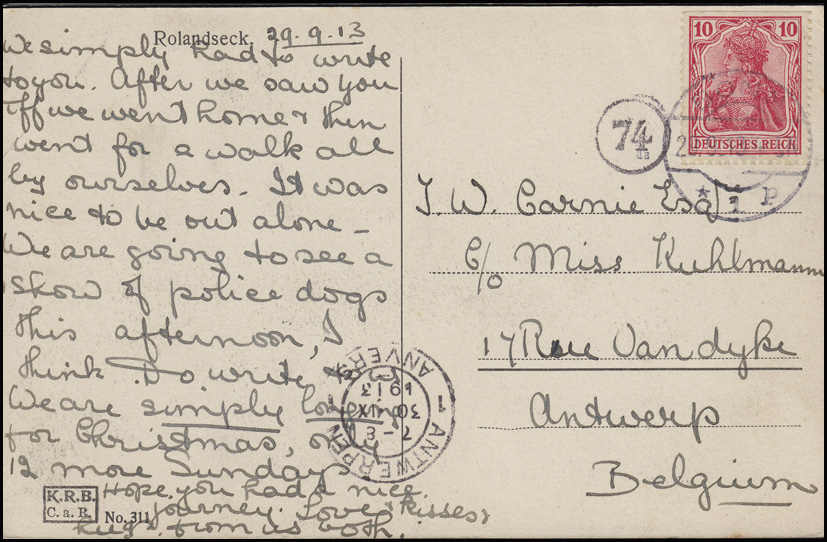 Rolandseck, 29.9.13
We simply had to write
to you. After we saw you
off we went home & then
went for a walk all
by ourselves. It was
nice to be out alone –
We are going to see a
show of police dogs
this afternoon, I
think. Do write to
We are simply longing
for Christmas, only
12 more Sundays
Hope you had a nice
journey. Love & kisses &
hugs from us both.
K.R.B.
C.a.R.
No. 311
10 10
DEUTSCHES REICH
74
* 1 P
J. W. Carnie Esq
c/o Miss Kuhlmann
17 Rue Vandyke
Antwerp
Belgium
1 ANTWERPEN 1
7-8
30 IX
1913
ANVERS